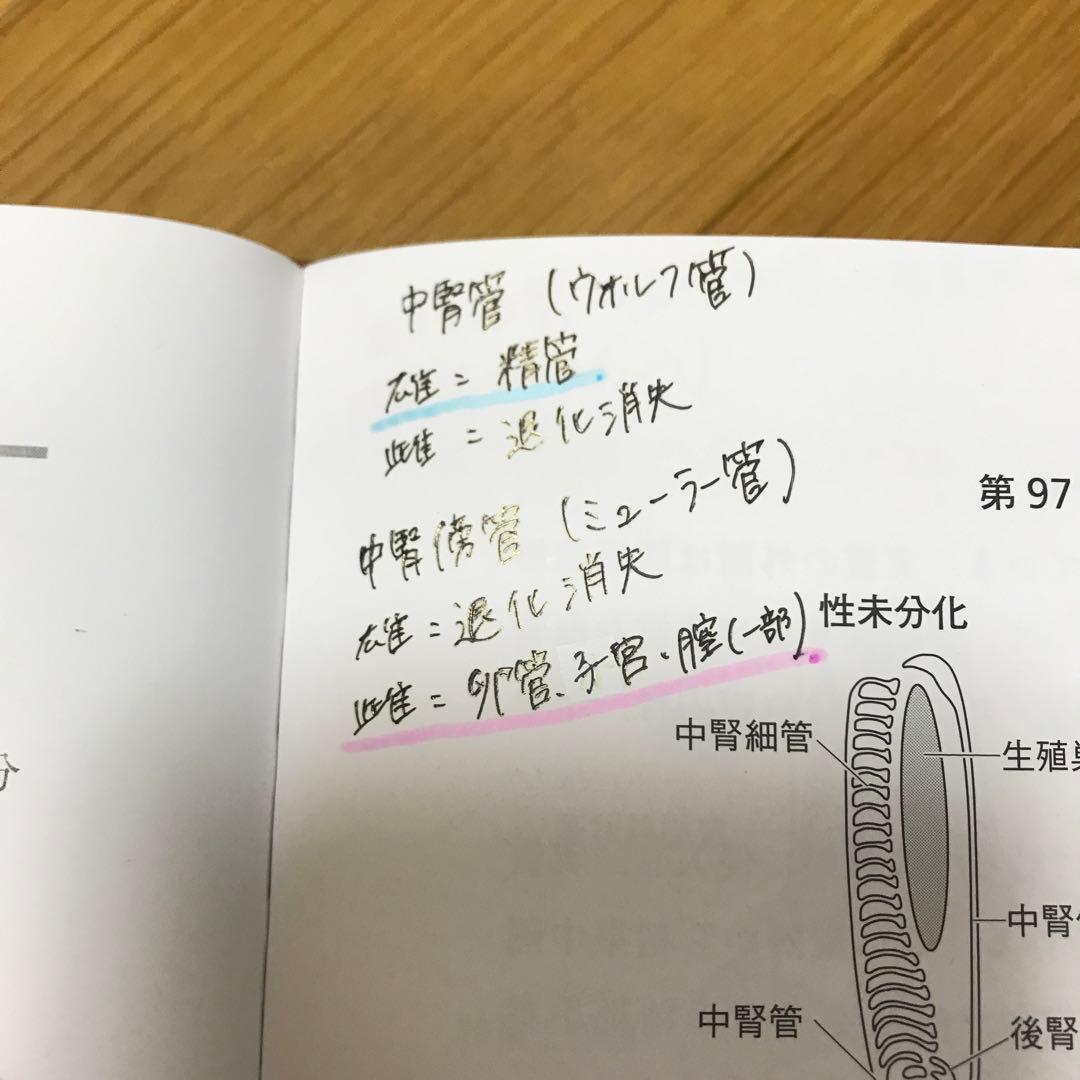 中腎管 (ウォルフ管)
雄=精管
雌=退化消失
中腎傍管 (ミューラー管)
雄=退化消失
雌=卵管、子宮、膣(一部)
第97
性未分化
中腎細管
生殖巣
中腎
中腎管
後腎
分